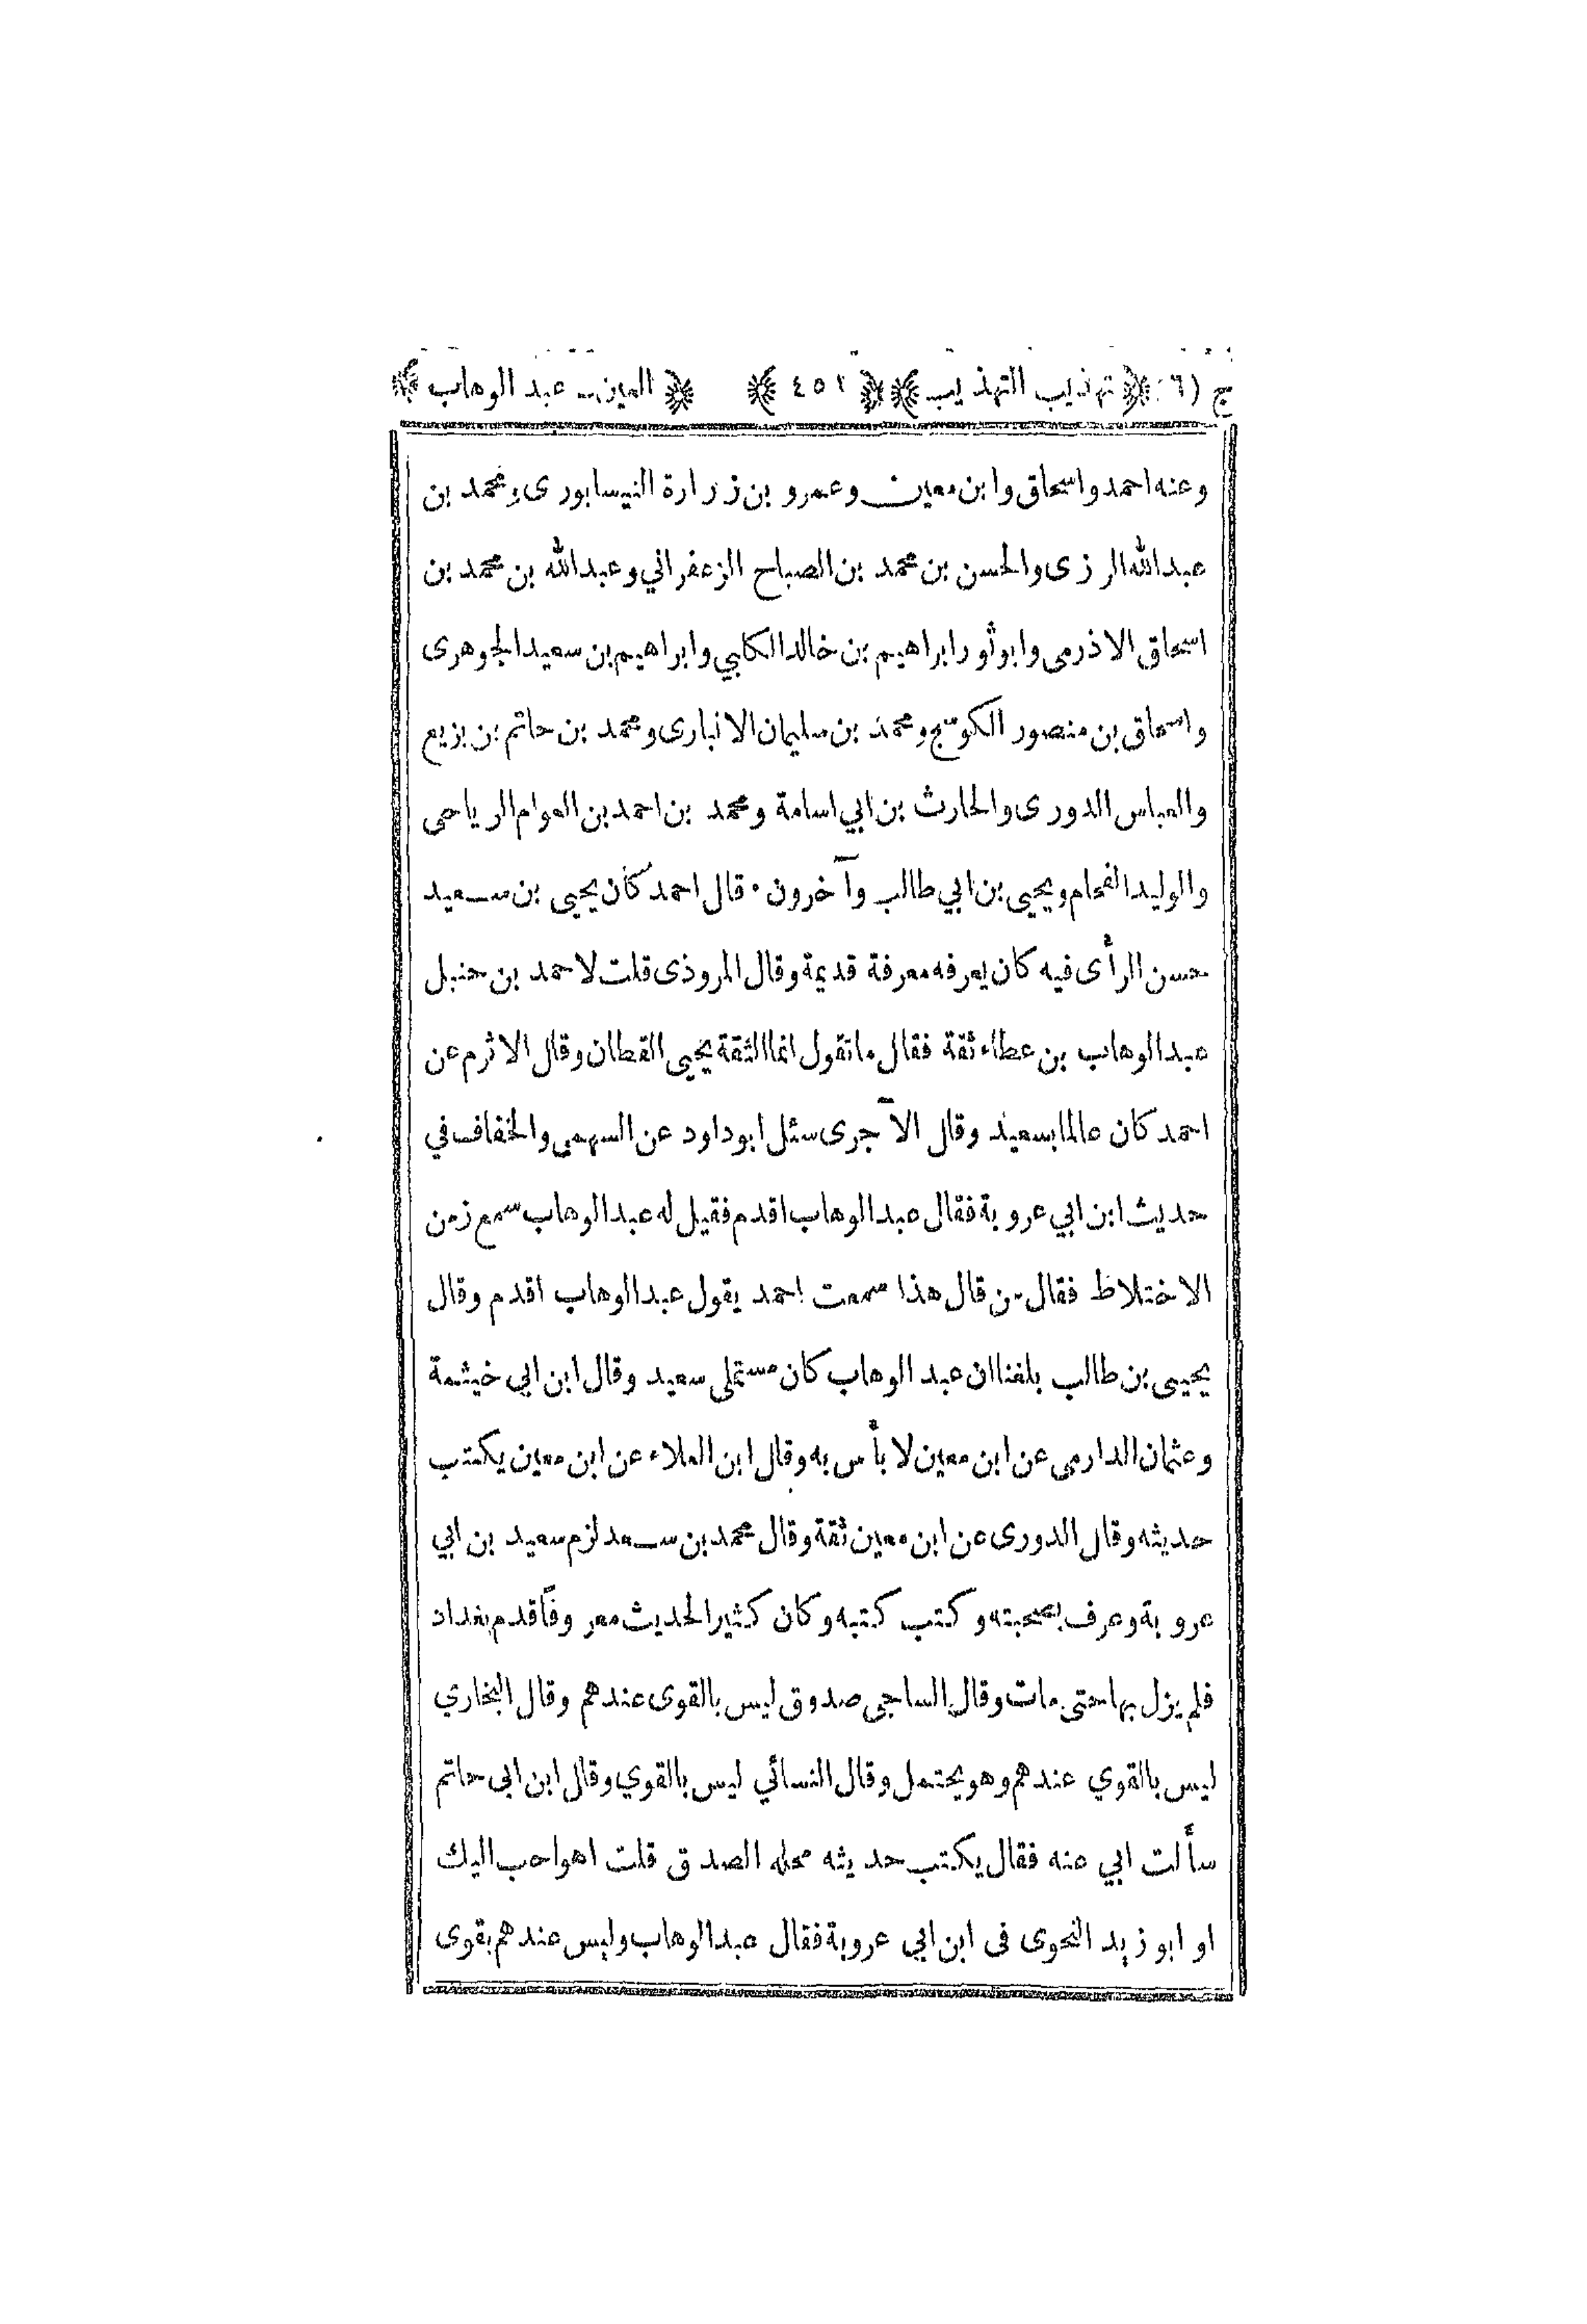 ج (٦) ﴿تهذيب التهذيب﴾ ﴿٤٥١﴾ ﴿العين ــ عبد الوهاب﴾
وعنه احمد واسحاق وابن معين وعمرو بن زرارة النيسابورى ومحمد بن
عبدالله الرزى والحسن بن محمد بن الصباح الزعفراني وعبدالله بن محمد بن
اسحاق الاذرمى وابوثور ابراهيم بن خالد الكلبي وابراهيم بن سعيد الجوهرى
واسحاق بن منصور الكوسج ومحمد بن سليمان الانبارى ومحمد بن حاتم بن بزيع
والعباس الدورى والحارث بن ابي اسامة ومحمد بن احمد بن العوام الرياحى
والوليد الفحام ويحيى بن ابي طالب وآخرون . قال احمد كان يحيى بن سعيد
حسن الرأى فيه كان يعرفه معرفة قديمة وقال المروذى قلت لاحمد بن حنبل
عبدالوهاب بن عطاء ثقة فقال ما تقول انما الثقة يحيى القطان وقال الاثرم عن
احمد كان عالما بسعيد وقال الآجرى سئل ابوداود عن السهمى والخفاف في
حديث ابن ابي عروبة فقال عبدالوهاب اقدم فقيل له عبدالوهاب سمع زمن
الاختلاط فقال من قال هذا سمعت احمد يقول عبدالوهاب اقدم وقال
يحيى بن طالب بلغنا ان عبد الوهاب كان مستملى سعيد وقال ابن ابي خيثمة
وعثمان الدارمى عن ابن معين لا بأس به وقال ابن الغلاء عن ابن معين يكتب
حديثه وقال الدورى عن ابن معين ثقة وقال محمد بن سعد لزم سعيد بن ابي
عروبة وعرف بصحبته وكتب كتبه وكان كثير الحديث معروفاً قدم بغداد
فلم يزل بها حتى مات وقال الساجى صدوق ليس بالقوى عندهم وقال البخاري
ليس بالقوي عندهم وهو يحتمل وقال النسائي ليس بالقوي وقال ابن ابى حاتم
سألت ابي عنه فقال يكتب حديثه محله الصدق قلت اهو احب اليك
او ابو زيد النحوى فى ابن ابي عروبة فقال عبدالوهاب وليس عندهم بقوى